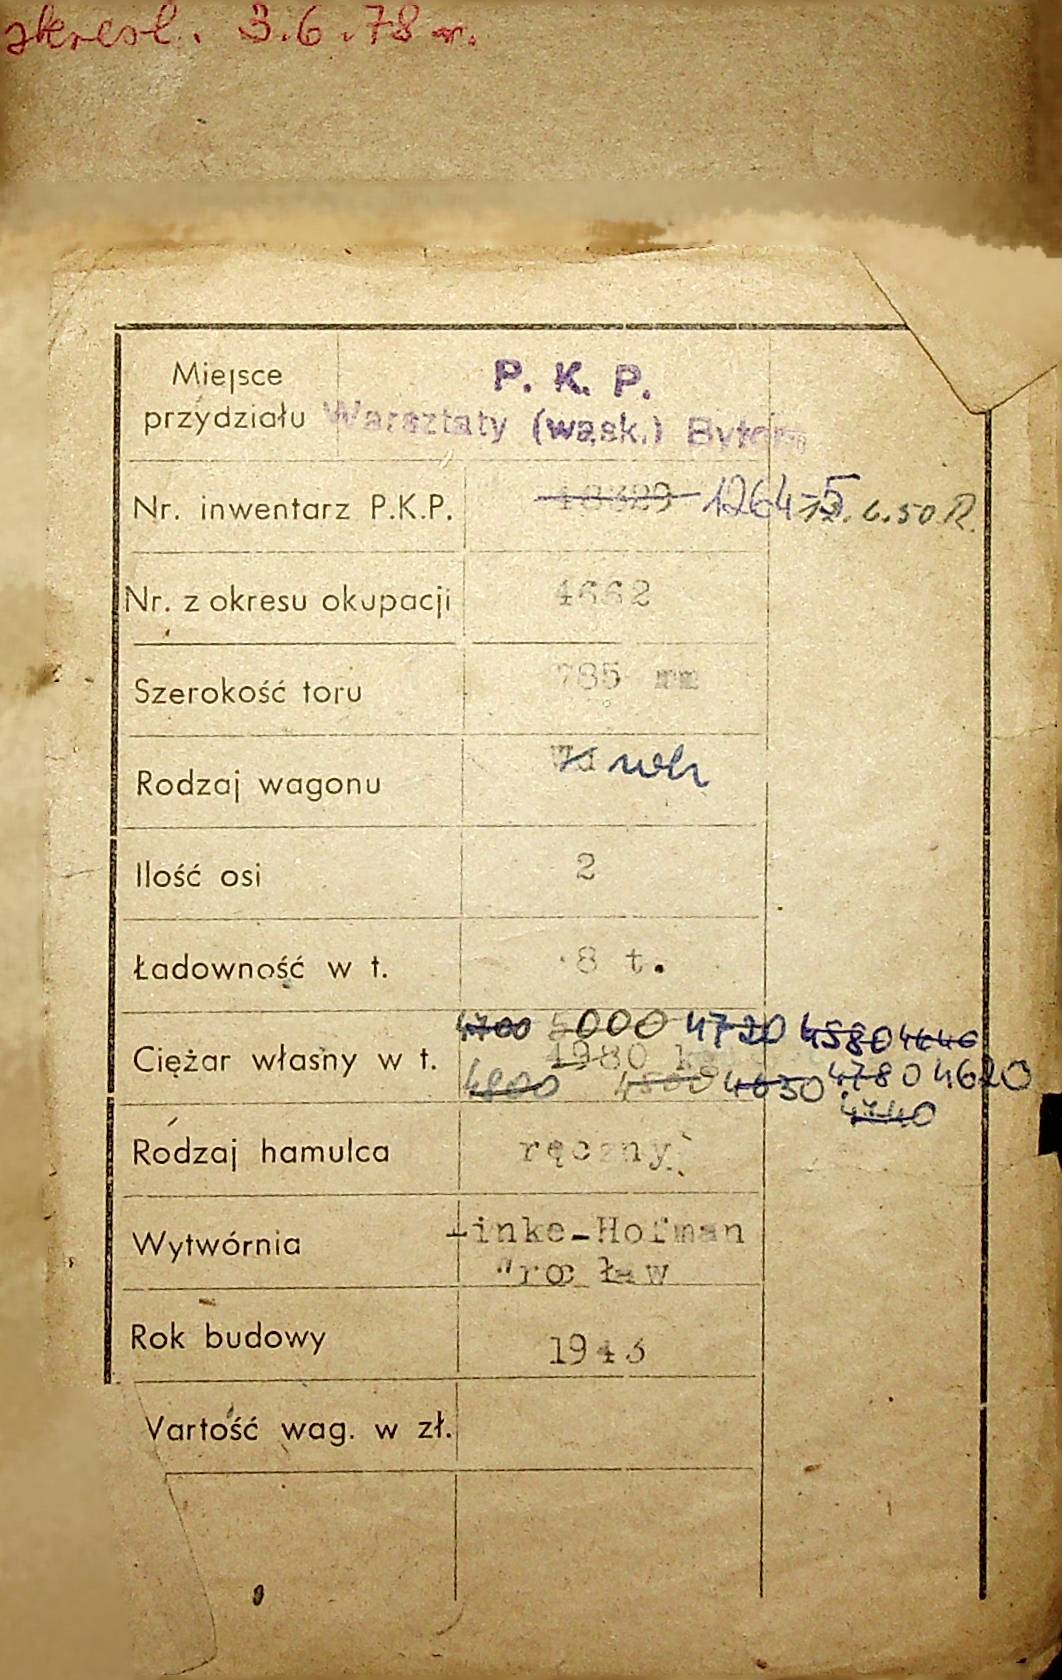 skresl. 3.6.78 r.
Miejsce przydziału P. K. P.
Warsztaty (wąsk.) Bytom
Nr. inwentarz P.K.P. 18329 12645 6.50 R.
Nr. z okresu okupacji 4662
Szerokość toru 785 mm
Rodzaj wagonu Wd wh
Ilość osi 2
Ładowność w t. 8 t.
4700 5000 4720 4580 4640
Ciężar własny w t. 4980 kg
4900 4800 4630 4780 4620
4740
Rodzaj hamulca ręczny
Wytwórnia Linke-Hofman
Wrocław
Rok budowy 1943
Wartość wag. w zł.